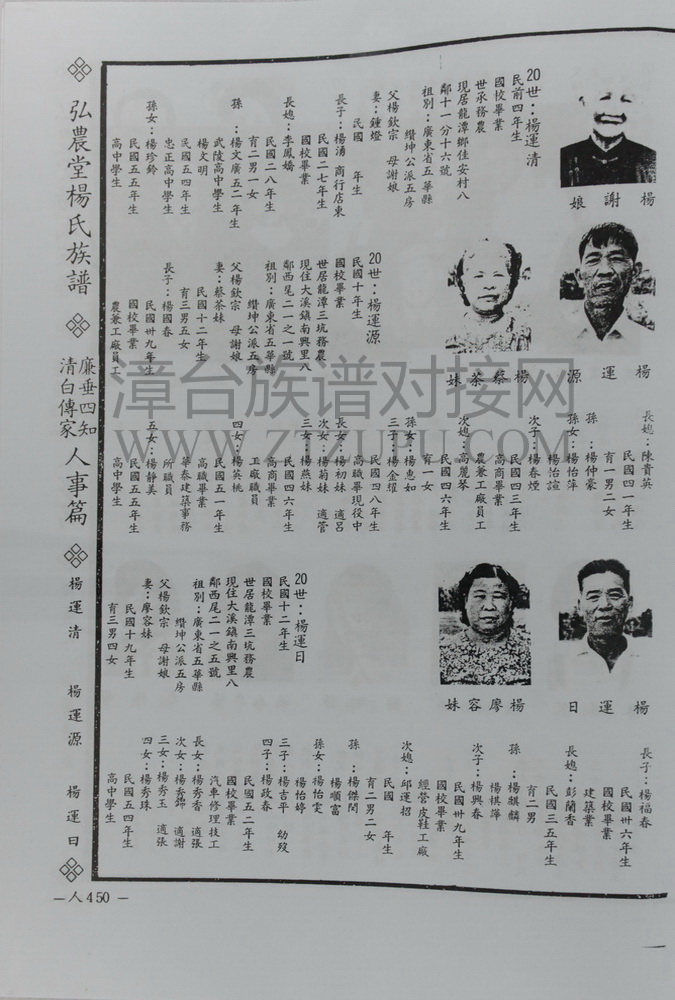 弘農堂楊氏族譜
廉垂四知
清白傳家
人事篇
楊運清
楊運源
楊運日
—人450—
楊謝娘
20世：楊運清
民前四年生
國校畢業
世承務農
現居龍潭鄉佳安村八
鄰十一分十六號
祖別：廣東省五華縣
纘坤公派五房
父楊欽宗 母謝娘
妻：鍾燈
民國 年生
長子：楊湧 商行店東
民國二七年生
國校畢業
長媳：李鳳嬌
民國二八年生
育二男一女
孫：楊文廣五二年生
武陵高中學生
楊文明
民國五四年生
忠正高中學生
孫女：楊珍鈴
民國五五年生
高中學生
楊運源
楊蔡茶妹
20世：楊運源
民國十年生
國校畢業
世居龍潭三坑務農
現住大溪鎮南興里八
鄰西尾二一之一號
祖別：廣東省五華縣
纘坤公派五房
父楊欽宗 母謝娘
妻：蔡茶妹
民國十二年生
育三男五女
長子：楊國春
民國卅九年生
國校畢業
農兼工廠員工
長媳：陳貴英
民國四一年生
育一男二女
孫：楊仲豪
孫女：楊怡萍
楊怡諠
次子：楊春煙
民國四三年生
高商畢業
農兼工廠員工
次媳：高麗琴
民國四六年生
育一女
孫女：楊惠如
三子：楊金耀
民國四八年生
高職畢現役中
長女：楊初妹 適呂
次女：楊菊妹 適管
三女：楊燕妹
民國四六年生
高商畢業
工廠職員
四女：楊英桃
民國五一年生
高職畢業
華泰建築事務
所職員
五女：楊靜美
民國五五年生
高中學生
楊運日
楊廖容妹
20世：楊運日
民國十二年生
國校畢業
世居龍潭三坑務農
現住大溪鎮南興里八
鄰西尾二一之五號
祖別：廣東省五華縣
纘坤公派五房
父楊欽宗 母謝娘
妻：廖容妹
民國十九年生
育三男四女
長子：楊福春
民國卅六年生
國校畢業
建築業
長媳：彭蘭香
民國三五年生
育二男
孫：楊麒麟
楊祺譁
次子：楊興春
民國卅九年生
國校畢業
經營皮鞋工廠
次媳：邱運招
民國 年生
育二男二女
孫：楊傑閔
楊順富
孫女：楊怡雯
楊怡婷
三子：楊吉平 幼歿
四子：楊政春
民國五二年生
國校畢業
汽車修理技工
長女：楊秀香 適張
次女：楊秀錦 適謝
三女：楊秀玉 適張
四女：楊秀珠
民國五四年生
高中學生
漳台族谱对接网
WWW.ZTZUPU.COM